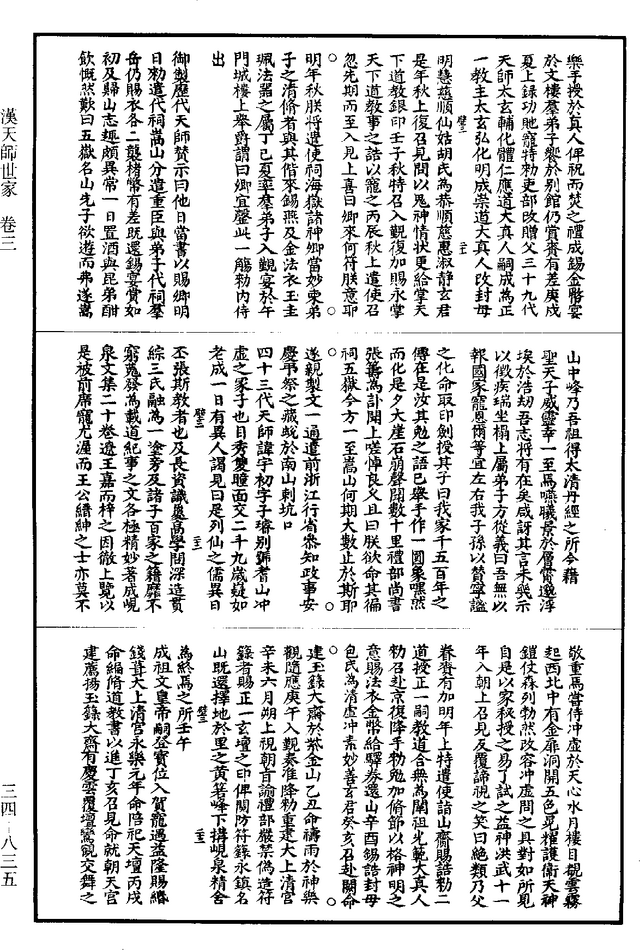 樂手授於真人俾祝而焚之禮成錫金幣宴
於文樓羣弟子饗於別館仍賚賚有差庚戌
夏上錄功馳寵特勑吏部改贈父三十九代
天師太玄輔化體仁應道大真人嗣成為正
一教主太玄弘化明成崇道大真人改封母
明慧慈順仙姑胡氏為恭順慈惠淑靜玄君
是年秋上復召見問以鬼神情狀更給掌天
下道教銀印壬子秋特召入觀復加賜永掌
天下道教事之誥以寵之丙辰秋上遣使召
忽先期而至入見上喜曰卿來何符朕意耶
明年秋朕將遣使祠海嶽諸神卿當妙棗弟
子之清脩者與其偕來錫燕及金法衣玉圭
珮法器之屬丁巳夏率羣弟子入觀宴於午
門城樓上舉爵謂曰卿宜罄此一觴勑內侍
出
御製歷代天師贊示曰他日當書以賜卿明
日勑遣代祠嵩山分遣重臣與弟子代祠羣
岳仍賜衣各二襲楮幣有差既還錫宴賚如
初及歸山志趣頗異常一日置酒與昆弟酣
飲慨然歎曰五嶽名山先子欲遊而弗遂嵩
山中峰乃吾祖得太清丹經之所今藉
聖天子威靈幸一至焉嚥曦景於層霄邈浮
埃於浩劫吾志將有在矣咸訝其言未幾示
以微疾瑞坐榻上屬弟子方從義曰吾無以
報國家寵恩爾等宜左右我子孫以贊寧謐
之化命取印劍授其子曰我家千五百年之
傳在是汝其勉之語已舉手作一圓象嘿然
而化是夕大崖石崩聲聞數十里禮部尚書
張籌為訃聞上嗟悼良久且曰朕欲命其徧
祠五嶽今方一至嵩山何期大數止於斯耶
遂親製文一通遣前浙江行省叅知政事安
慶弔祭之藏蛻於南山刺坑口
四十三代天師諱宇初字子璿別號耆山冲
虛之冢子也目秀雙瞳面交二十九歲疑如
老成一日有異人謁見曰是列仙之儒異日
丕張斯教者也及長資識晁高學閎深造貫
綜三氏融為一塗旁及諸子百家之籍靡不
窮蒐發為載道紀事之文各極精妙著成峴
泉文集二十卷遼王嘉而梓之因徹上覽以
是被前席寵尤渥而王公縉紳之士亦莫不
敬重焉當侍冲虛於天心水月樓目覩雲霧
起西北中有金扉洞開五色晃糧護衛天神
鎧仗森列勃然改容冲虛問之具對如所見
自是以家秘授之易了試之益神洪武十一
年入朝上召見反覆諦視之笑曰絕類乃父
眷賚有加明年上特遣使詣山齋賜誥勑二
道授正一嗣教道合無為闡祖光範大真人
勑召赴京復降手勑勉加脩節以格神明之
意賜法衣金幣給驛券還山辛酉錫誥封母
包氏為清虛冲素妙善玄君癸亥召赴闕命
建玉籙大齋於紫金山乙丑命禱雨於神樂
觀隨應庚午入觀奏准降勑重建大上清宮
辛未六月朔上視朝旨諭禮部嚴禁偽造符
籙者賜正一玄壇之印俾關防符籙永鎮名
山既選擇地於里之黃箬峰下搆峴泉精舍
為終焉之所壬午
成祖文皇帝嗣登寶位入賀寵遇益隆賜緡
錢葺大上清宮永樂元年命陪祀天壇丙戌
命編脩道教書以進丁亥召見命就朝天宮
建薦揚玉籙大齋有慶雲覆壇鸞鶴交舞之
漢天師世家 卷三
三四－八三五